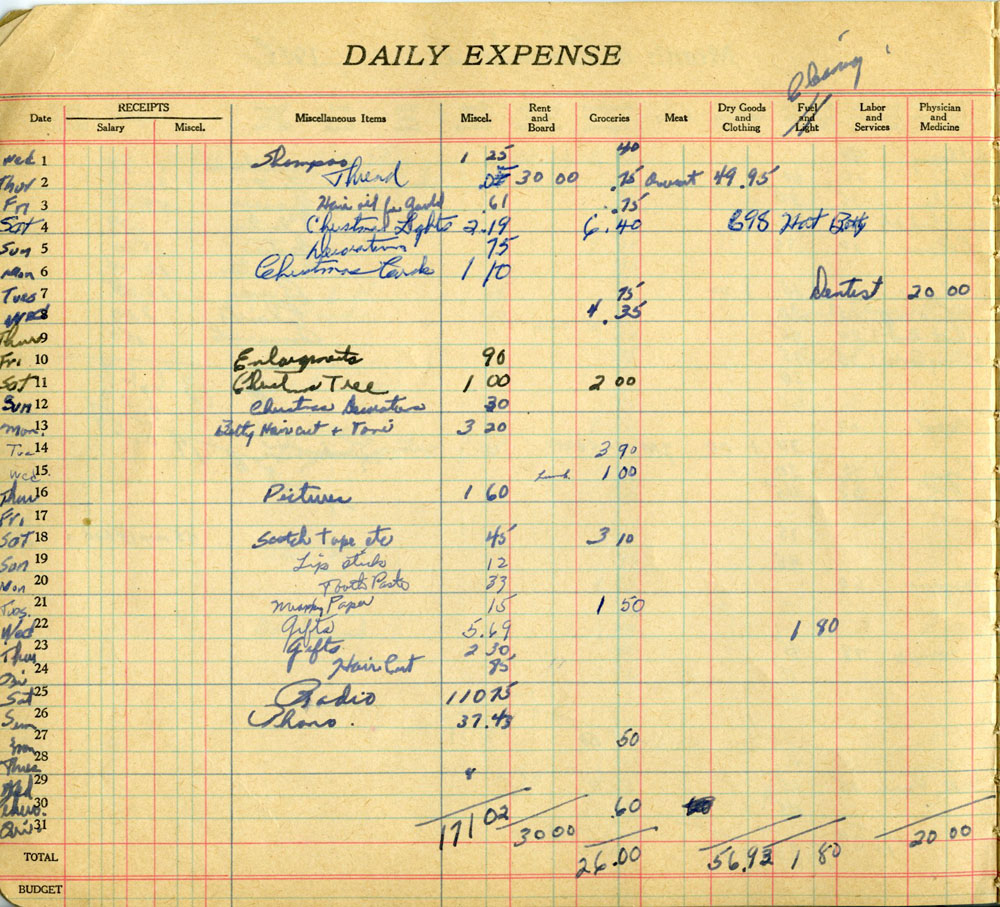 DAILY EXPENSE
Date RECEIPTS Salary Miscel. Miscellaneous Items Miscel. Rent and Board Groceries Meat Dry Goods and Clothing Fuel and Light Labor and Services Physician and Medicine
Wed 1 Shampoo 1 25 40
Thur 2 Thread 30 00 .75 49.95
Fri 3 Hair oil for .61 .75
Sat 4 Christmas Lights 2.19 6.40 698 Hot
Sun 5 Decorations 75
Mon 6 Christmas Cards 1 10
Tues 7 75 Dentist 20 00
Wed 8 4.35
Thurs 9
Fri. 10 Enlargments 90
Sat 11 Christmas Tree 1 00 2 00
Sun 12 Christmas Decorations 30
Mon. 13 Betty Haircut + Toni 3 20
Tue 14 3 90
Wed. 15 Lunch 1 00
Thur 16 Pictures 1 60
Fri. 17
Sat 18 Scotch Tape etc 45 3 10
Sun 19 Lip stick 12
Mon 20 Tooth Paste 33
Tues. 21 Paper 15 1 50
Wed 22 Gifts 5.69 1 80
Thur 23 Gifts 2 30
Fri 24 Hair Cut 85
Sat 25 Radio 110 75
Sun 26 Phono. 37.43
27 50
28
29
30 .60
31 171 02 30 00 20 00
TOTAL 26.00 56.93 1 80
BUDGET